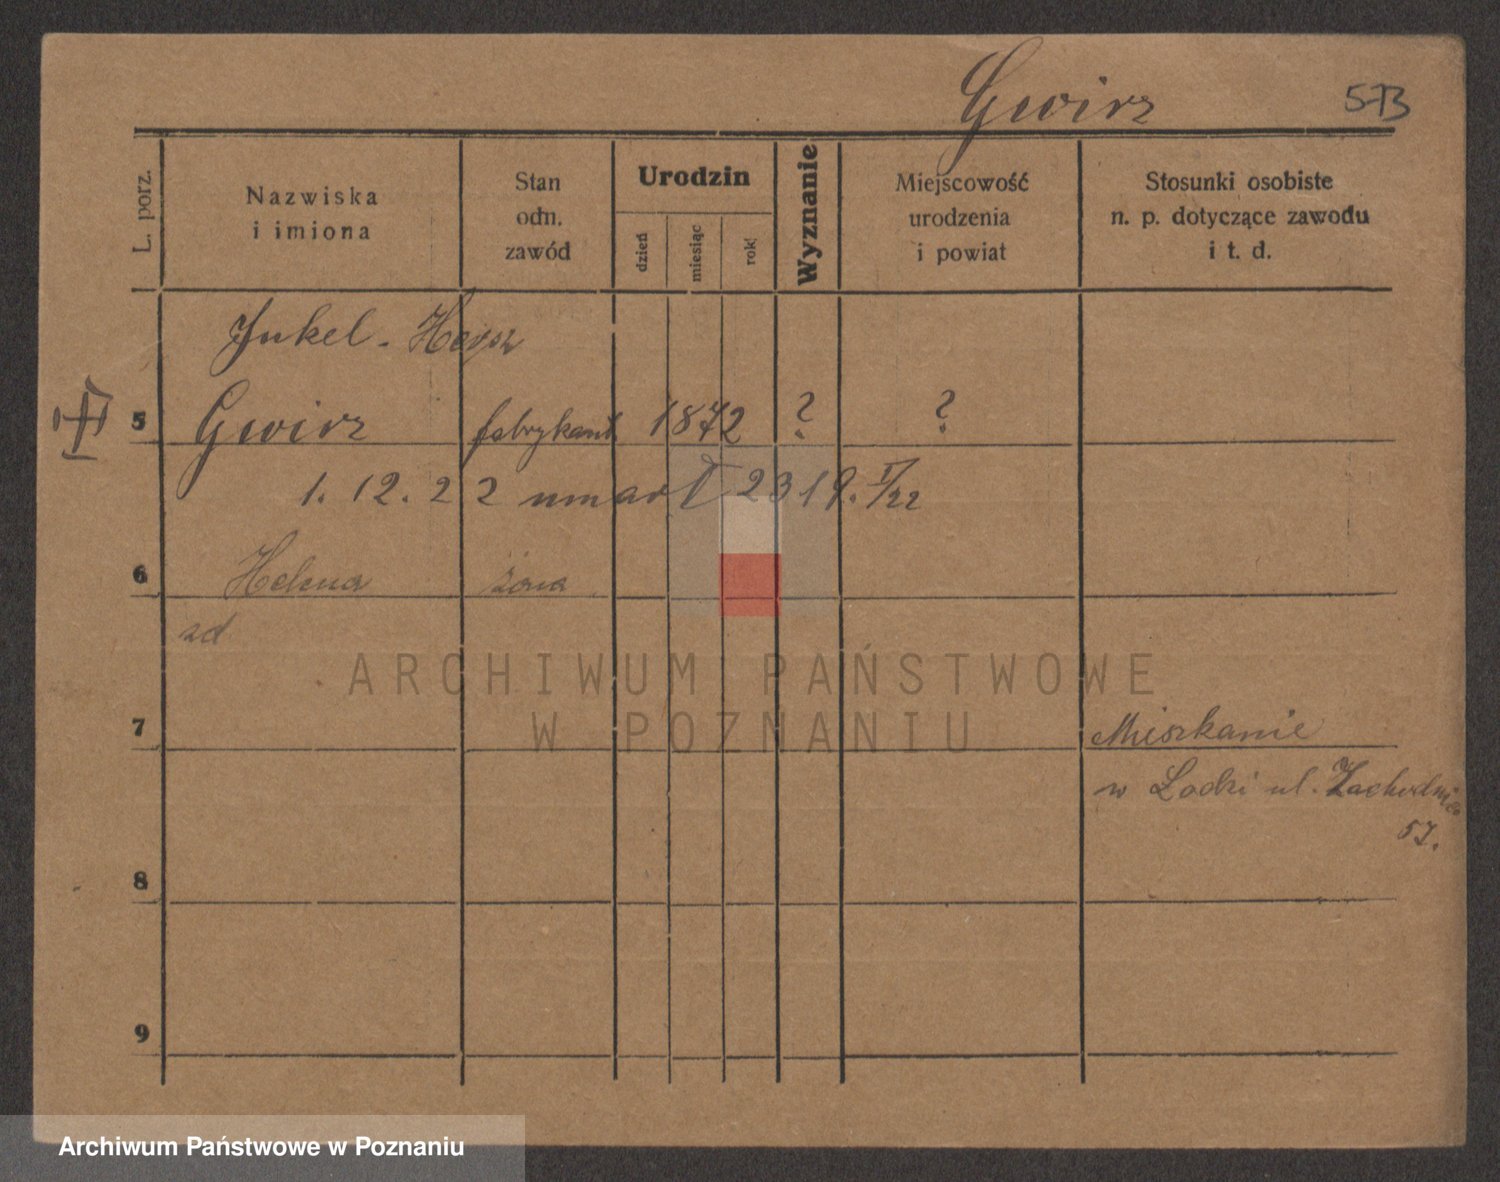 Gwirz 573
L. porz.
Nazwiska
i imiona
Stan
odn.
zawód
Urodzin
dzień
miesiąc
rok
Wyznanie
Miejscowość
urodzenia
i powiat
Stosunki osobiste
n. p. dotyczące zawodu
i t. d.
Jukel - Hersz
5 Gwirz fabrykant 1872 ? ?
1. 12. 22 umarł 2319. I/22
6 Helena żona
zd
ARCHIWUM PAŃSTWOWE
W POZNANIU
7 Mieszkanie
w Lodzi ul. Zachodnia
57.
8
9
Archiwum Państwowe w Poznaniu